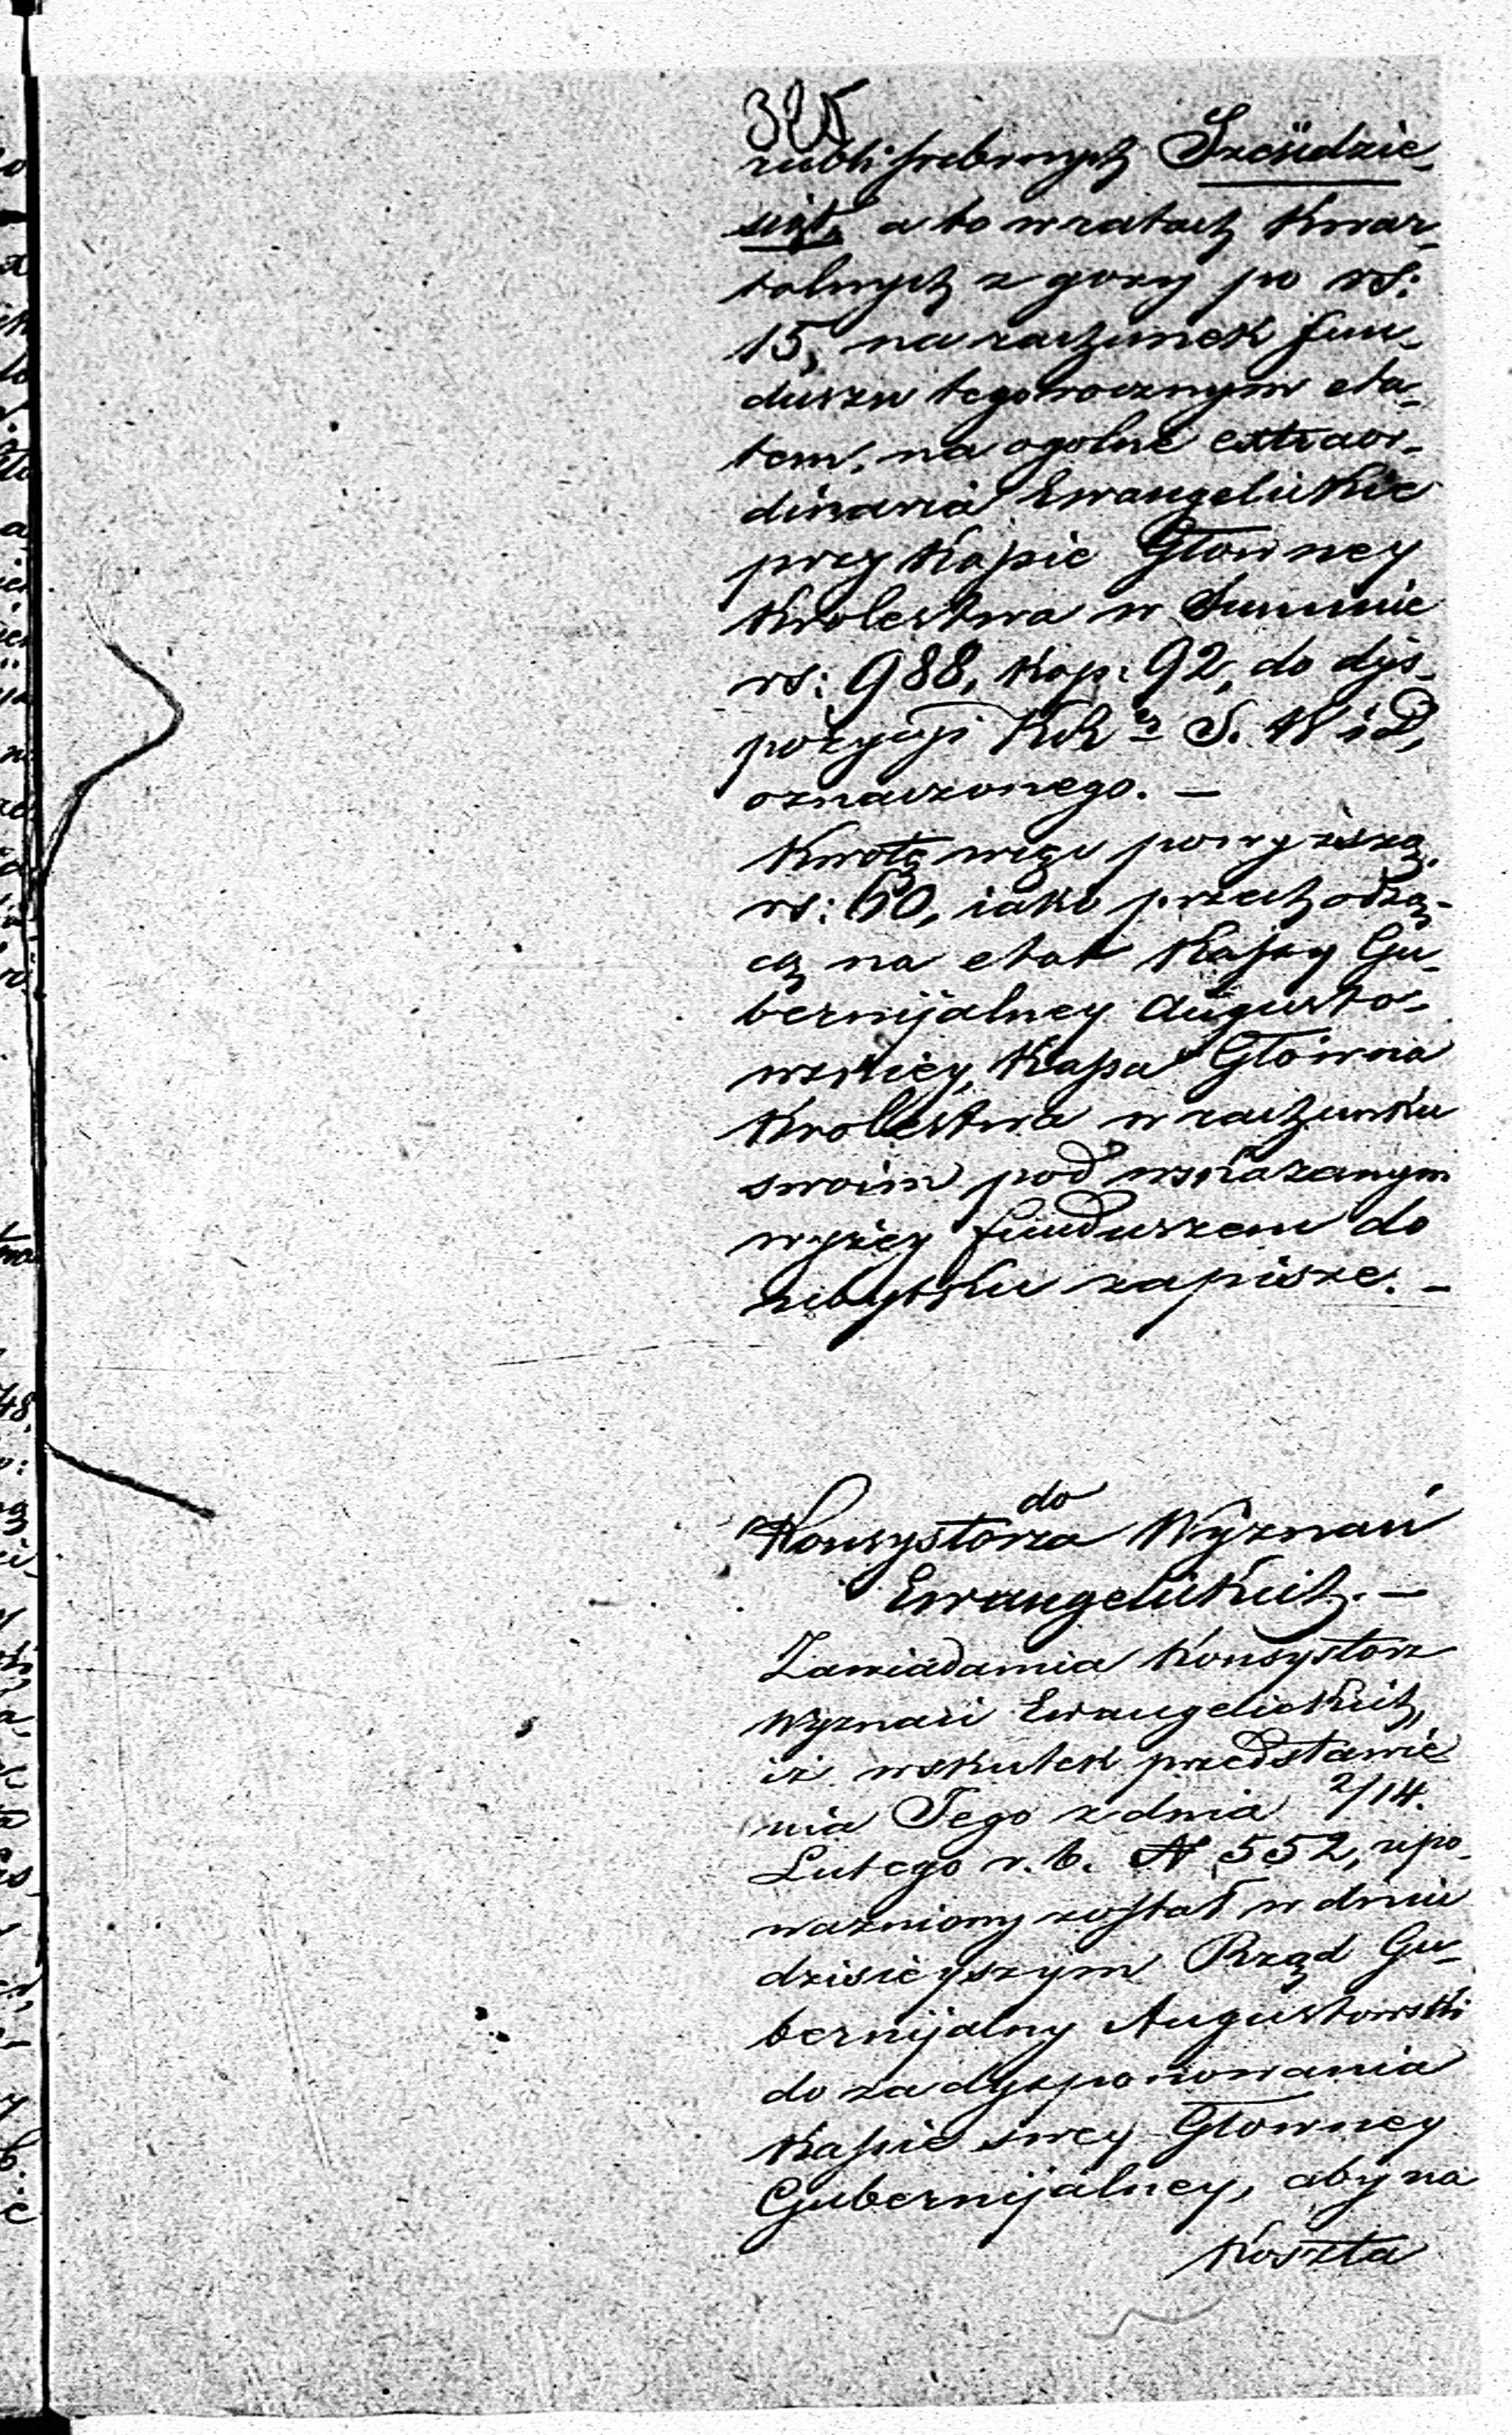 325
rubli srebrnych Sześćdzie-
siąt, a to w ratach kwar-
talnych z gory po rs:
15, na rachunek fun-
duszu tegorocznym eta-
tem, na ogolne extraor-
dinaria Ewangelickie
przy Kassie Głowney
Krolestwa w Summie
rs: 988, kop: 92, do dys-
pozycyi S. W i D,
oznaczonego. —
Kwotę więc powyższą
rs: 60, iako przechodzą-
cą na etat Kassy Gu-
bernijalney Augusto-
wskiey, Kassa Główna
Krolestwa w rachunku
swoim pod wskazanym
wyżey funduszem do
ubytku zapisze. —
do
Konsystorza Wyznań
Ewangelickich. —
Zawiadamia Konsystorz
Wyznań Ewangelickich,
iż wskutek przedstawie-
nia Jego z dnia 2/14.
Lutego r. b. N 552, upo-
ważniony został w dniu
dzisieyszym Rząd Gu-
bernijalny Augustowski
do zadysponowania
Kassie swey Głowney
Gubernijalney, aby na
Koszta